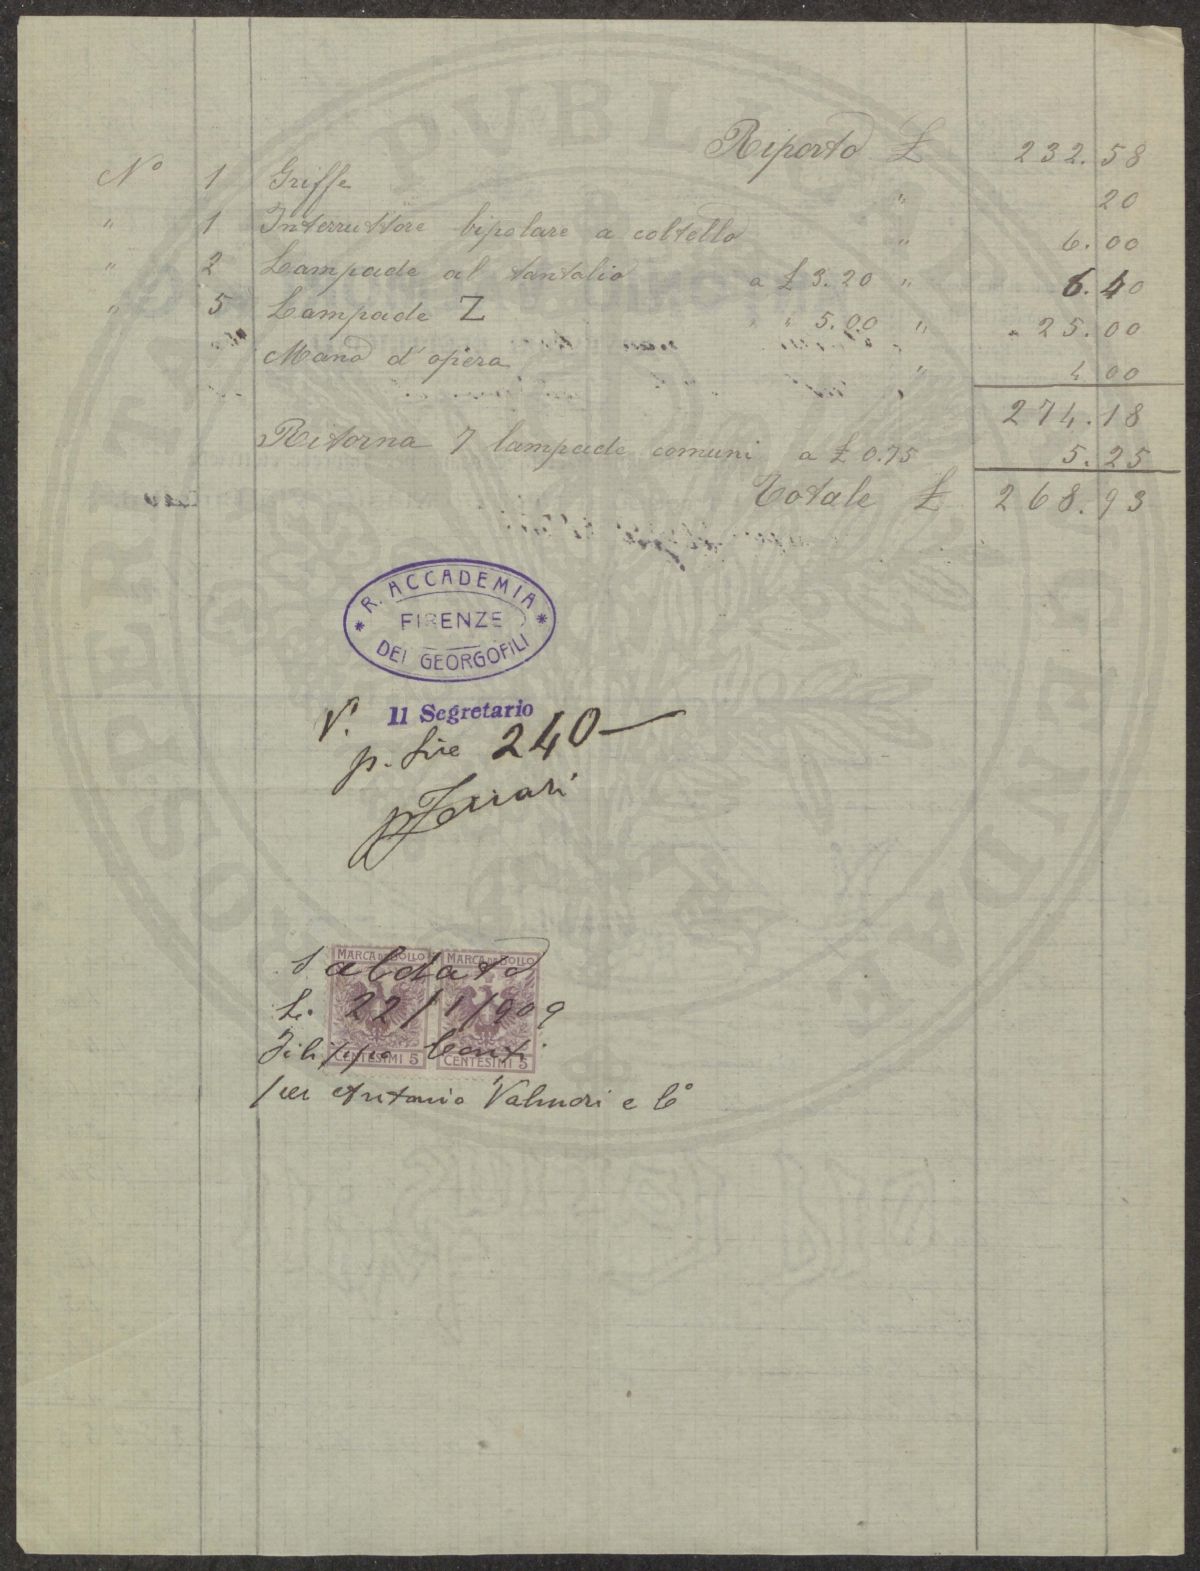 Riporto £ 232.58
N° 1 Griffe " 20
" 1 Interruttore bipolare a coltello " 6.00
" 2 Lampade al tantalio a £ 3.20 " 6.40
" 5 Lampade Z " " 5.00 " " 25.00
Mano d'opera " 4 00
274.18
Ritorna 7 lampade comuni a £ 0.75 5.25
Totale £ 268.93
R. ACCADEMIA
FIRENZE
DEI GEORGOFILI
V.° Il Segretario
p. Lire 240—
Ferrari
MARCA DA BOLLO MARCA DA BOLLO
Saldato
Li 22/1/909
Filippo Conti
CENTESIMI 5 CENTESIMI 5
per Antonio Valmori e C°